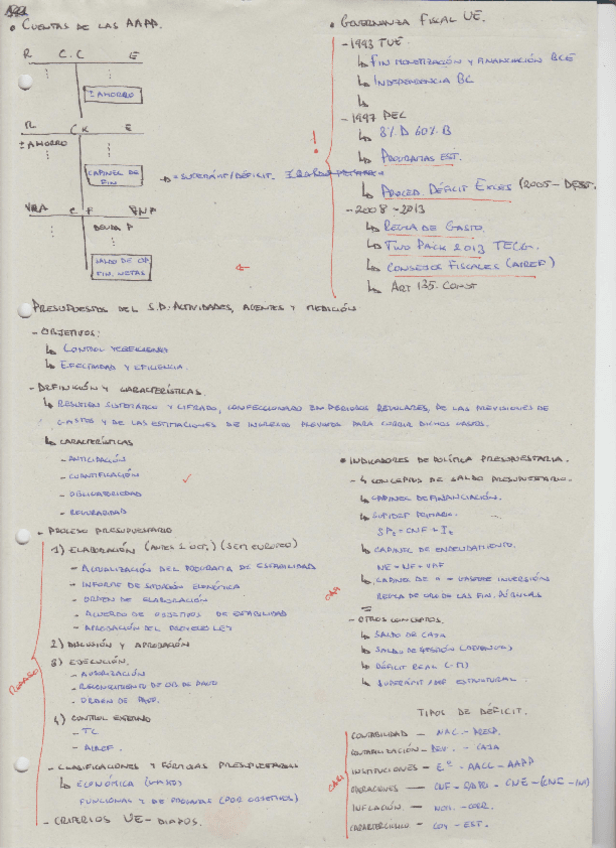 • CUENTAS DE LAS AAPP.
R C.C E
± AHORRO
R C K E
± AHORRO
CAP/NEC DE FIN
= SUPERÁVIT/DÉFICIT.
VNA C F VNP
DEUDA P
SALDO DE OP. FIN. NETAS
• GOBERNANZA FISCAL UE.
- 1993 TUE.
↳ FIN MONETIZACIÓN Y FINANCIACIÓN BCE
↳ INDEPENDENCIA BC
↳
- 1997 PEC
↳ 3% D 60% B
↳ PROGRAMAS EST.
↳ PROCED DÉFICIT EXCES (2005 -
- 2008 - 2013
↳ REGLA DE GASTO.
↳ TWO PACK 2013
↳ CONSEJOS FISCALES (AIREF)
↳ ART 135. CONST
PRESUPUESTOS DEL S.P: ACTIVIDADES, AGENTES Y MEDICIÓN
- OBJETIVOS:
↳ CONTROL
↳ EFECTIVIDAD Y EFICIENCIA.
- DEFINICIÓN Y CARACTERÍSTICAS.
↳ RESUMEN SISTEMÁTICO Y CIFRADO, CONFECCIONADO EN PERIODOS REGULARES, DE LAS PREVISIONES DE
GASTOS Y DE LAS ESTIMACIONES DE INGRESOS PREVISTOS PARA CUBRIR DICHOS GASTOS.
↳ CARACTERÍSTICAS
- ANTICIPACIÓN
- CUANTIFICACIÓN
- OBLIGATORIEDAD
- REGULARIDAD
- PROCESO PRESUPUESTARIO
1) ELABORACIÓN (ANTES 1 OCT.) (SEM EUROPEO)
- ACTUALIZACIÓN DEL PROGRAMA DE ESTABILIDAD
- INFORME DE SITUACIÓN ECONÓMICA
- ORDEN DE ELABORACIÓN
- ACUERDO DE OBJETIVOS DE ESTABILIDAD
- APROBACIÓN DEL PROYECTO LEY
2) DISCUSIÓN Y APROBACIÓN
3) EJECUCIÓN.
- AUTORIZACIÓN
- RECONOCIMIENTO DE OB. DE PAGO
- ORDEN DE PAGO.
4) CONTROL EXTERNO
- TC
- AIREF.
REPASO
- CLASIFICACIONES Y FÓRMULAS PRESUPUESTARIAS
↳ ECONÓMICA (GASTO)
FUNCIONAL Y DE PROGRAMAS (POR OBJETIVOS)
- CRITERIOS UE - DIAPOS.
• INDICADORES DE POLÍTICA PRESUPUESTARIA.
- 4 CONCEPTOS DE SALDO PRESUPUESTARIO.
↳ CAP/NEC DE FINANCIACIÓN.
↳ SUP/DEF PRIMARIO.
SP = CNF + I
↳ CAP/NEC DE ENDEUDAMIENTO.
NE = NF + VAF
↳ CAP/NEC DE
REGLA DE ORO DE LAS FIN. PÚBLICAS
- OTROS CONCEPTOS.
↳ SALDO DE CAJA
↳ SALDO DE GESTIÓN
↳ DÉFICIT REAL
↳ SUPERÁVIT/DEF ESTRUCTURAL
TIPOS DE DÉFICIT.
CONTABILIDAD - NAC. - PRESP.
CONTABILIZACIÓN - DEV. - CAJA
INSTITUCIONES - E° - AACC - AAPP
OPERACIONES -
INFLACIÓN. - NOM. - CORR.
- COY - EST.